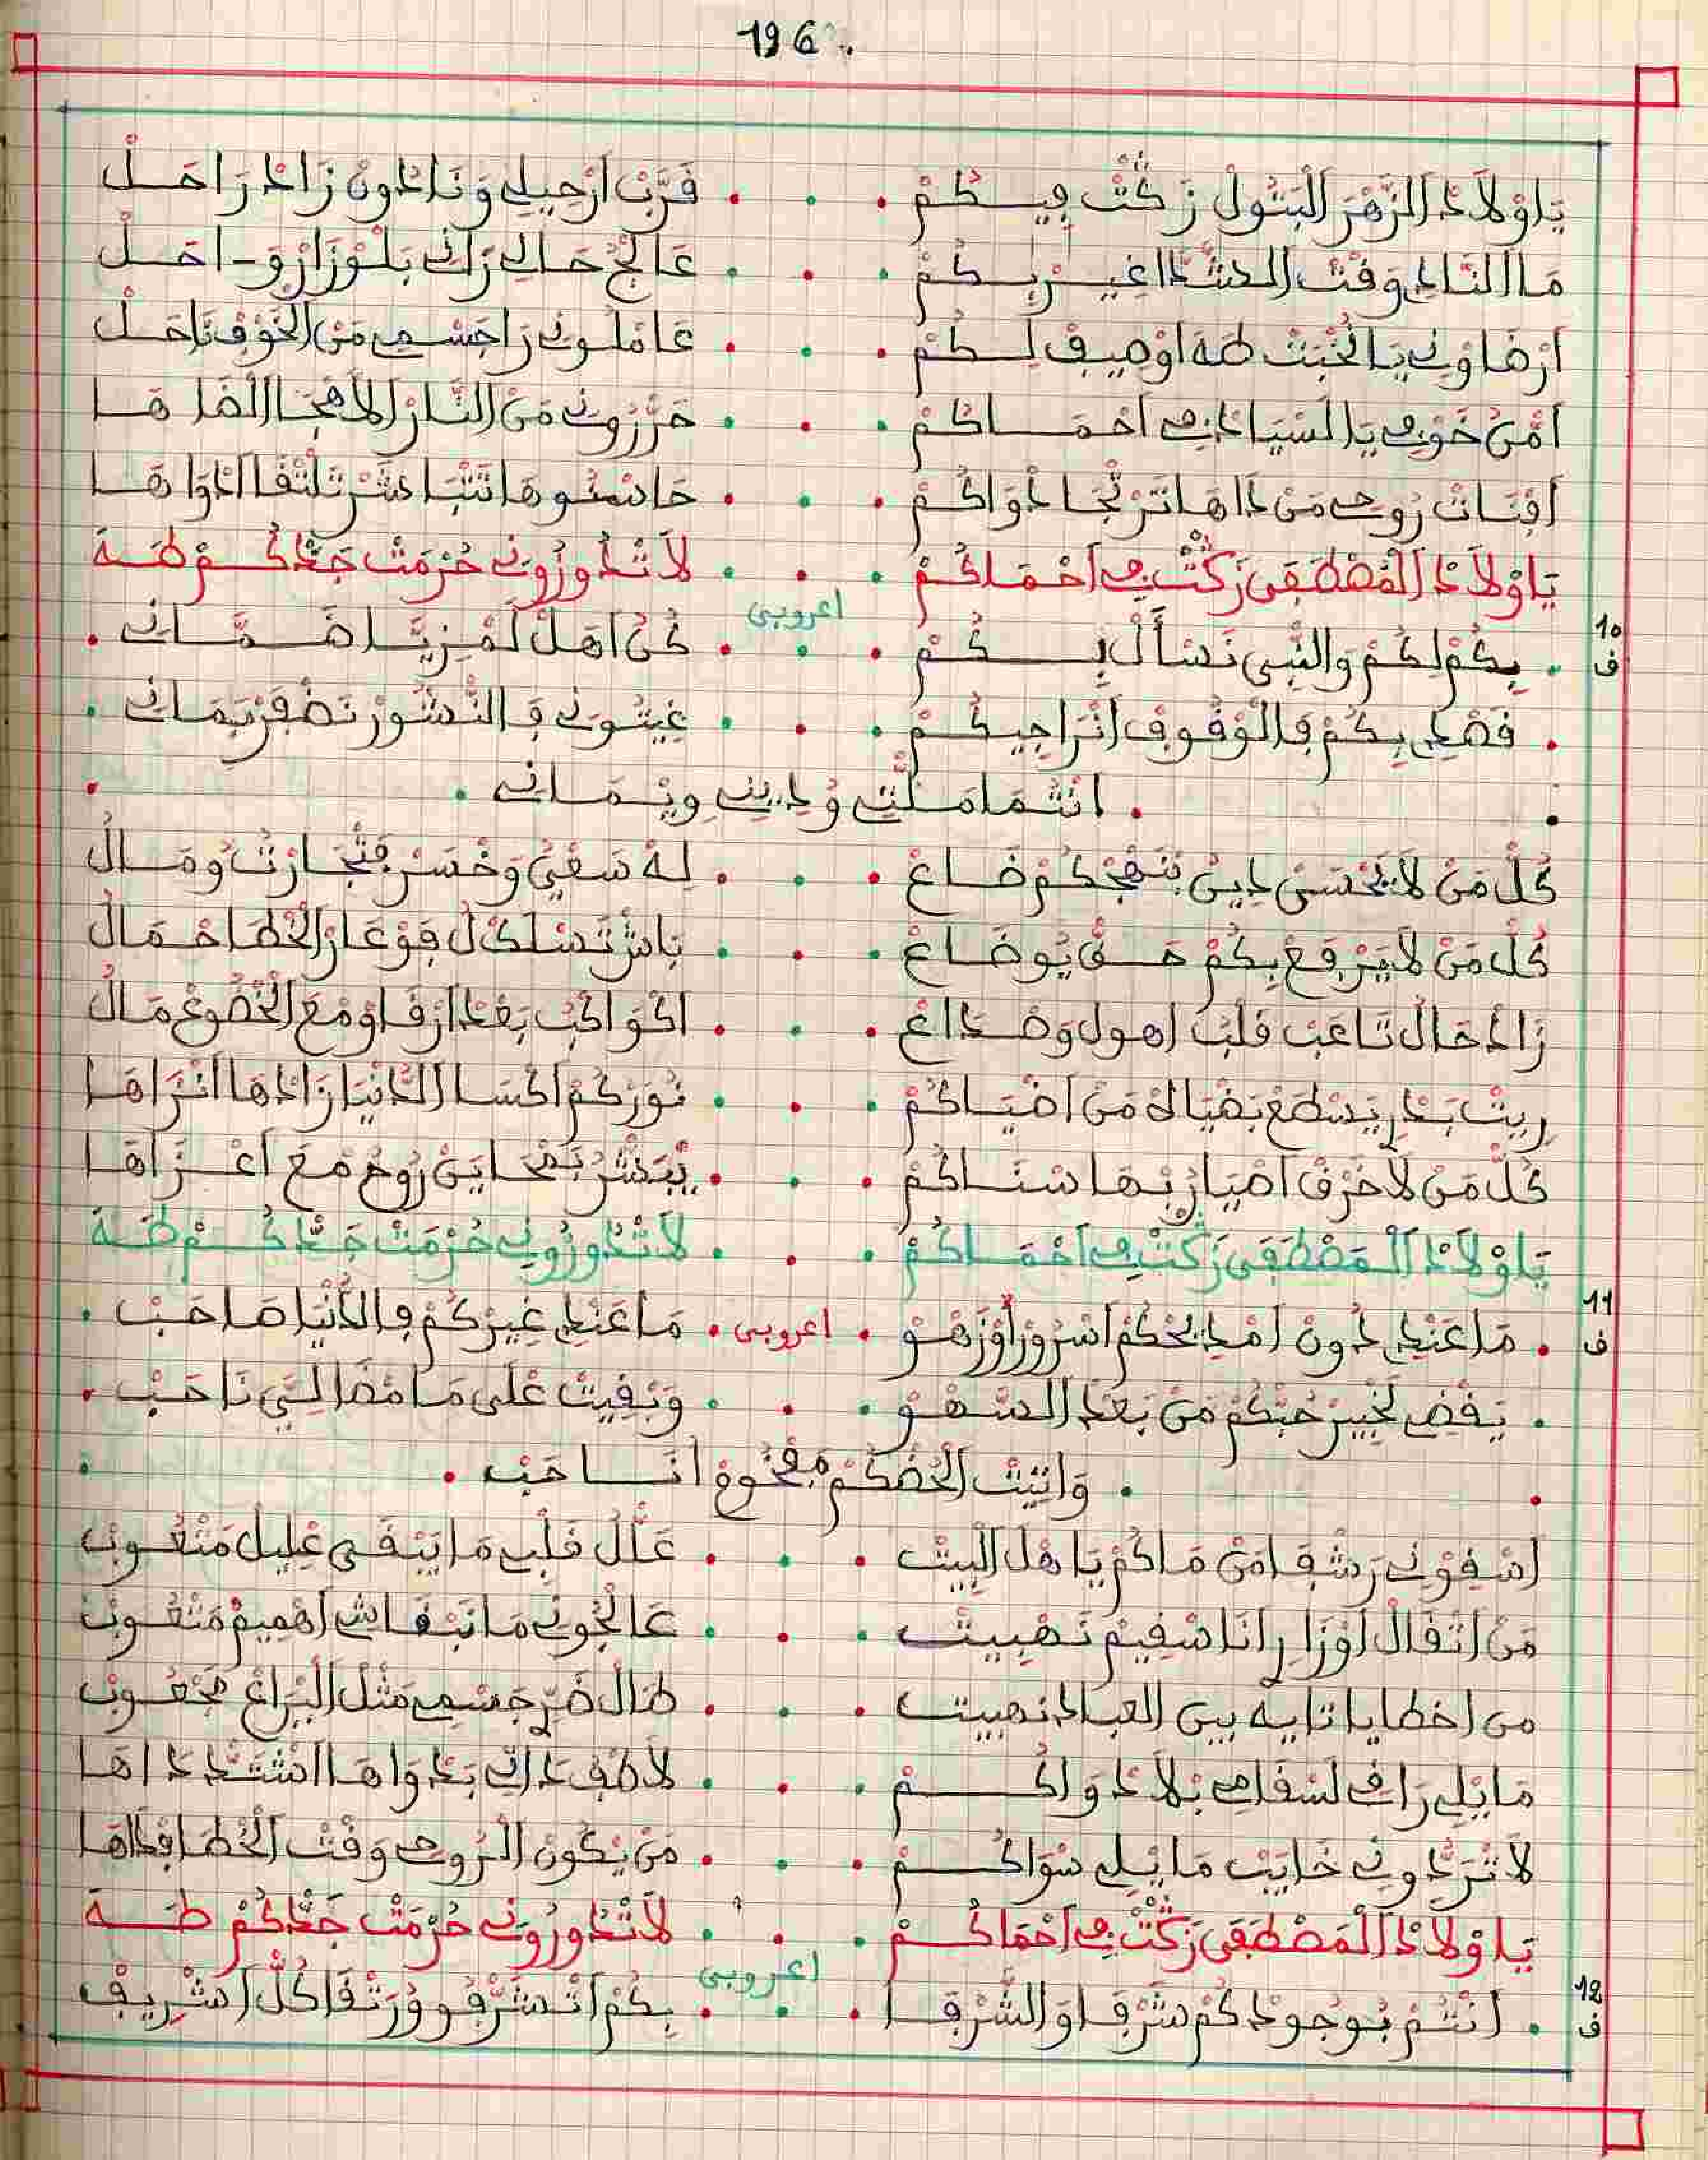 196
يَاوْلاَدْ الزَّهْرَ الْبَتُولْ زَكْتْ فِيكُمْ . . . قَرَّبْ ارْحِيلِي وَنَا دُونْ زَادْ رَاحَلْ
مَا النَادِي وَقْتْ الشدَّا غِيرْكُمْ . . . عَالْجُ حَالِي رَانِي
ارْضَاوْنِي يَا نُخْبَتْ طَهَ اوْصِيفْ لِكُمْ . . . عَامْلُونِي رَا جَسْمِي مَنْ الْخَوْفْ نَاحَلْ
امّنْ خَوْفِي يَا لَسْيَادْنِي احْمَاكُمْ . . . حَرّرُونِي مَنْ النَّارْ
افْنَاتْ رُوحِي مَنْ دَاهَا تَرْجَا دْوَاكُمْ . . . تَلْقَا ادْوَاهَا
يَاوْلاَدْ الْمَصْطَفَى زَكْتْ فِي احْمَاكُمْ . . . لاَ تْدُوزُونِي حُرْمَتْ جَدّكُمْ طَهَ
10 ف
اعروبي
. بِكُمْ لِكُمْ وَالنّبِي نَسْأَلْ بِكُمْ . . . كُنْ اهَلْ لَمْزِيَّا ضَمَّانِي .
. قَصْدِي بِكُمْ فَالْوْقُوفْ انْرَاجِيكُمْ . . . غِيتُونِي فَ النّشُورْ نَضْفَرْ بَمَانِي .
. انْتُمَا مَلّتِي وُ دِينِي وِيْمَانِي .
كُلّ مَنْ لاَ يَحْسَنْ دِينْ بْنَهْجْكُمْ ضَاعْ . . . لِهْ سَعْيُ وَخْسَرْ فَتْجَارْتُ وُمَالُ
كُلّ مَنْ لاَ يَرْفَعْ بِكُمْ حَقْ يُوضَاعْ . . . بَاشْ تَسْلَكْ لُ فَوْعَارْ الْخْطَا حْمَالُ
زَادْ حَالُ تَاعَبْ قَلْبُ اهول وَصْدَاعْ . . . اكْوَاكْبُ بَعْدْ ارْقَاوْ مْعَ الْخْضُوعْ مَالُ
رِيتْ بَدْرِ يَسْطَعْ بَضْيَاهْ مَنْ اضْيَاكُمْ . . . نُورْكُمْ اكْسَا الدَّنْيَا زَادْهَا انْزَاهَا
كُلّ مَنْ لاَ خَرْقْ اضْيَارْ بْهَا سْنَاكُمْ . . . يْبَشّرْ بَمْحَايَنْ رُوحُ مْعَ اعْزَاهَا
يَاوْلاَدْ الْمَصْطَفَى زَكْتْ فِي احْمَاكُمْ . . . لاَ تْدُوزُونِي حُرْمَتْ جَدّكُمْ طَهَ
11 ف
. مَا عَنْدِي دُونْ امْدِيحْكُمْ اسْرُورْ اوْزَهْوْ . اعروبي . مَا عَنْدِي غِيرْكُمْ فَالدَّنْيَا صَاحَبْ .
. يَقْضِي لَخْبِيرْ حُبّكُمْ مَنْ بَعْدْ السّهْوْ . . . وَبْقِيتْ عْلَى مَا مْضَا لِيَّ نَاحَبْ .
. وَاتِيتْ الْحُضْكُمْ مْفْجُوعْ انَا حَبْ .
اسْقِوْنِي رَشْقَا مَنْ مَاكُمْ يَا هْلْ الْبِيتْ . . . عَلّلْ قَلْبِي مَا يَبْقَى عْلِيلْ مَتْعُوبْ
مَنْ اتْقَالْ اوْزَارِ انَا سْقِيمْ نَصْبِيتْ . . . عَالْجُونِي مَا نَبْقَاشِي اهْمِيمْ مَتْعُوبْ
من اخطايا تايه بين العباد نصبيت . . . طَالْ ضَرّ جَسْمِي مَثْلْ الْبْرَاعْ مَجْعُوبْ
مَا بْلِي رَافْ لَسْقَامِي بْلاَ دْوَاكُمْ . . . لاَطْفِي دَاتِي بَدْوَاهَا اشْتَدّ دَاهَا
لاَ تْرَدُّونِي خَايَبْ مَا بْلِي سْوَاكُمْ . . . مَنْ يْكُونْ الْرُوحِي وَقْتْ الْخْطَا فْدَاهَا
يَاوْلاَدْ الْمَصْطَفَى زَكْتْ فِي احْمَاكُمْ . . . لاَ تْدُوزُونِي حُرْمَتْ جَدّكُمْ طَهَ
12 ف
اعروبي
. انْتُمْ بُوجُودْكُمْ شَرْفَاوْ الشّرْفَا . . . بِكُمْ اتْشَرّفُو وُرَتْقَا كُلّ اشْرِيفْ